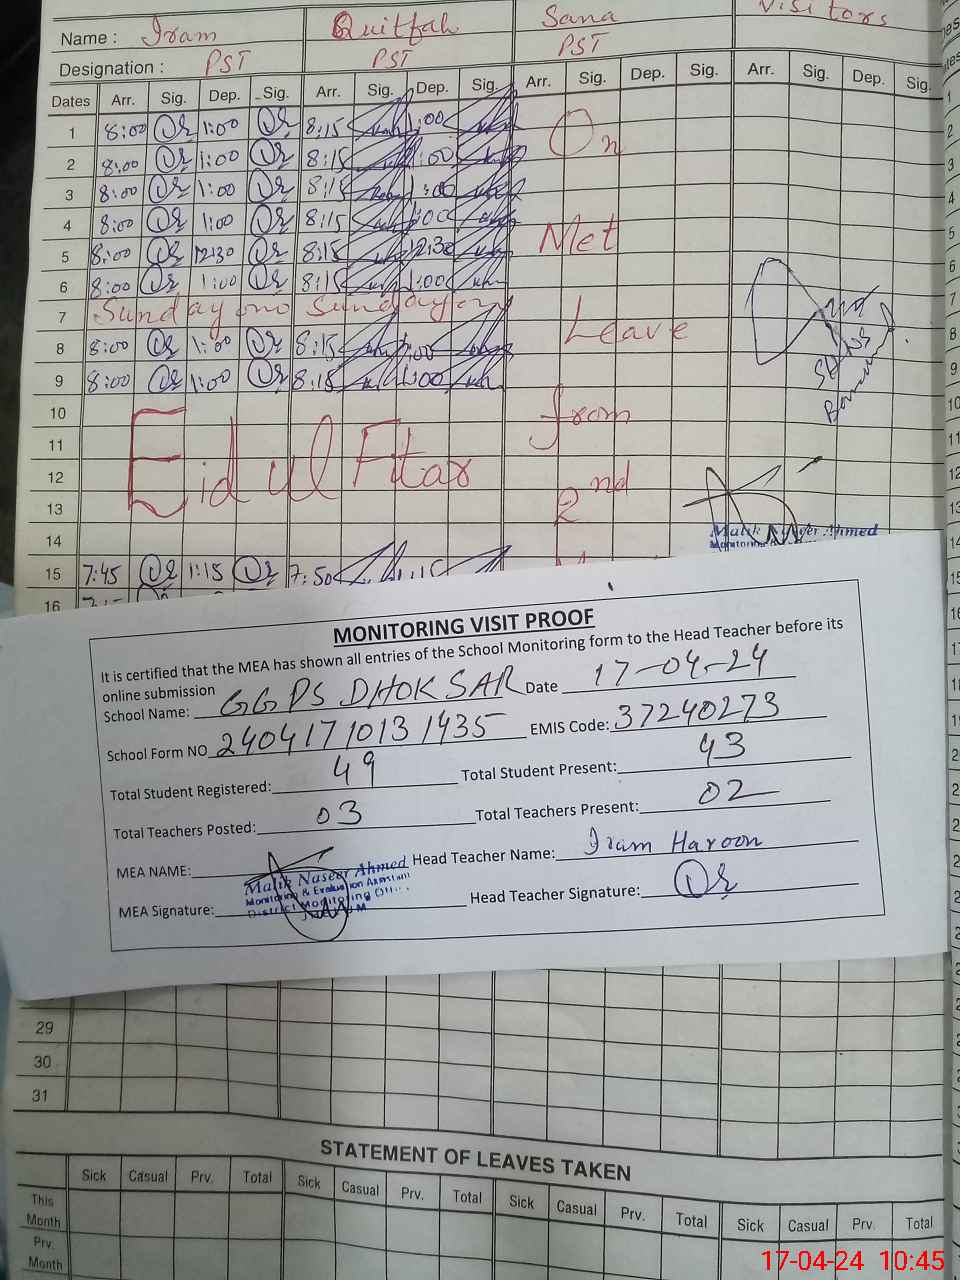 Name : Iram Quitfah Sana Visitors
Designation : PST PST PST
Dates Arr. Sig. Dep. Sig. Arr. Sig. Dep. Sig. Arr. Sig. Dep. Sig. Arr. Sig. Dep. Sig.
1 8:00 1:00 8:15 1:00
2 8:00 1:00 8:15 1:00 On
3 8:00 1:00 8:15 1:00
4 8:00 1:00 8:15 1:00
5 8:00 12:30 8:15 12:30 Met
6 8:00 1:00 8:15 1:00
7 Sunday Sunday
8 8:00 1:00 8:15 1:00 Leave
9 8:00 1:00 8:15 1:00
10 from
11
12 Eid ul Fitar
13 2nd
14 Malik Naseer Ahmed
15 7:45 1:15 7:50
16
MONITORING VISIT PROOF
It is certified that the MEA has shown all entries of the School Monitoring form to the Head Teacher before its
online submission
School Name: GGPS DHOK SAR Date 17-04-24
School Form NO 24041710131435 EMIS Code: 37240273
Total Student Registered: 49 Total Student Present: 43
Total Teachers Posted: 03 Total Teachers Present: 02
MEA NAME: Head Teacher Name: Iram Haroon
Malik Naseer Ahmed
Monitoring & Evaluation Assistant
District Monitoring
MEA Signature: Head Teacher Signature:
29
30
31
STATEMENT OF LEAVES TAKEN
Sick Casual Prv. Total Sick Casual Prv. Total Sick Casual Prv. Total Sick Casual Prv. Total
This
Month
Prv.
Month
17-04-24 10:45